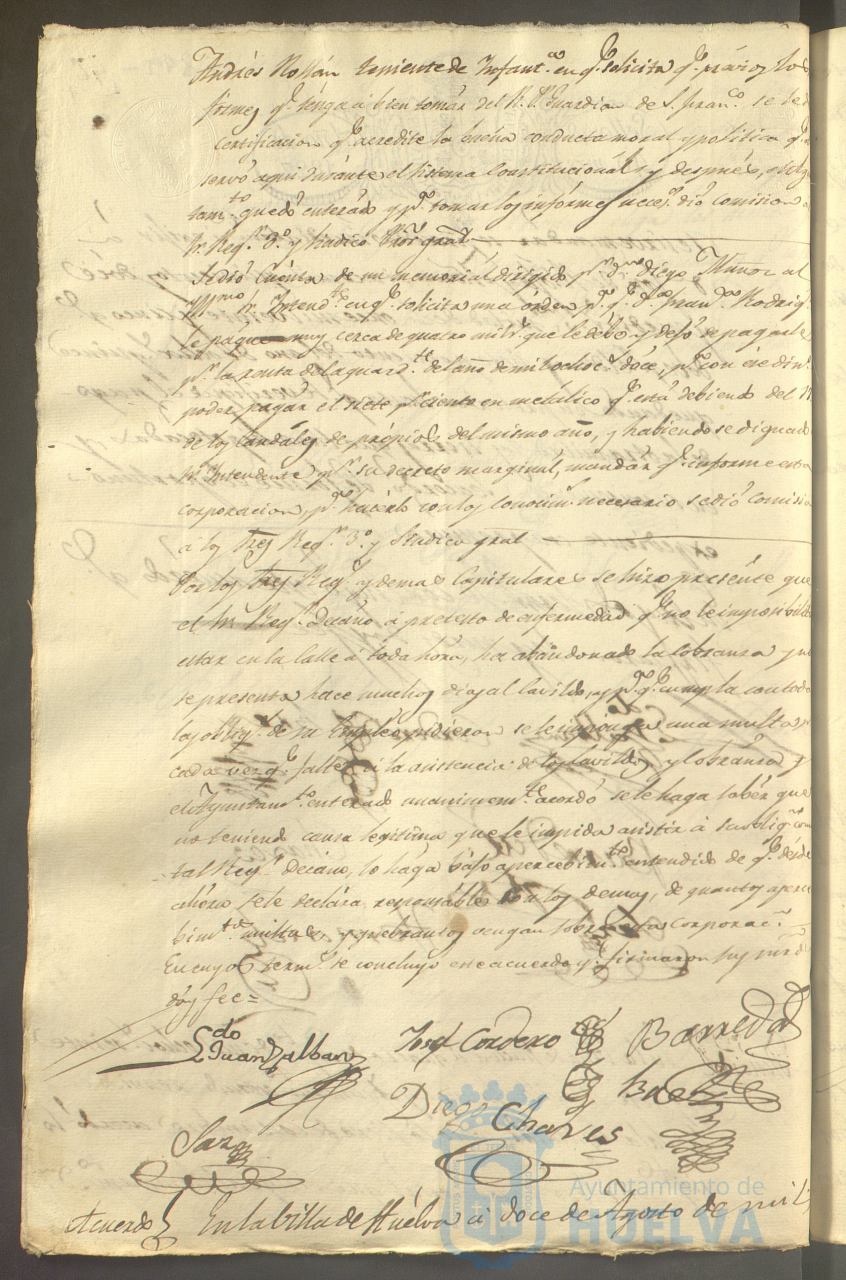 Andrés Roldán teniente de Infant.ª en q.e solicita q.e prévios los
formes q.e tenga á bien tomár del R. P. Guardian de S. Fran.co se le
Certificacion q.e acredite la buena conducta moral y politica q.e
servó aqui durante el sistema Constitucional y después, el Ayun
tam.to quedó enterado y p.a tomar los informes neces.s dió comision
Sr. Reg.r 3.º y Sindico Pror gral
Se dió Cuenta de un memorial dirigido p.r Diego Muñoz al
Sr. Intend.te en q.e solicita una órden p.a q.e D.n Fran.co Rodrig.
le pague muy cerca de quatro mil r.s que le debe y dejó de pagarle
p.r la renta del aguard.te del año de mil ochoc.s doce, p.a con ese din.o
poder pagár el siete p.r ciento en metálico q.e está debiendo del
de los Caudales de própios del mismo año, y habiendose dignado
Sr. Intendente p.r su decreto marginál, mandár q.e informe esta
corporacion, p.a hacerlo con los conocim.s necesarios se dió Comisio
á los tres Reg.r 3.º y Sindico gral
Por los tres Reg.s y demas Capitulares se hizo presente que
el Sr. Reg.r Decáno á pretesto de enfermedad q.e no le imposibilita
estar en la calle á toda hora, ha abandonado la cobranza y no
se presenta hace muchos dias al Cavildo, y p.a q.e cumpla con todas
las oblig.s de su Empleo pidieron se le imponga una multa p.r
cada vez q.e falte á la asistencia de los Cavildos y Cobranza y
el Ayuntam.to enterado unanimem.te acordó se le haga sabér que
no teniendo causa legitima que le impida asistir á sus oblig.s como
tal Reg.r Decano, lo haga bajo apercebim.to entendido de q.e desde
ahora se le declara responsable con los demas, de quantos aperce
bim.tos multas, y quebrantos ocurran sobre esta corporac.n
En cuyos term.s se concluyó este acuerdo y firmaron sus mrds
doy fee=
Ldo Juan Zalban
José Cordero
Barreda
Diego Chaves
Saez
Acuerdo En la Villa de Huélva á doce de Agosto de mil
Ayuntamiento de
HUELVA